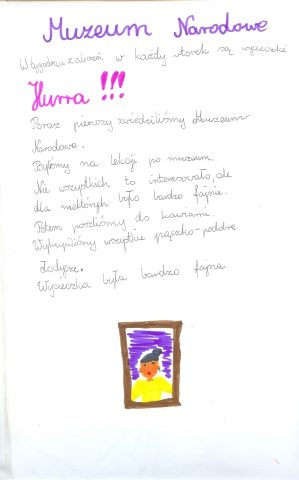 Muzeum Narodowe
W tygodniu zdarzeń w każdy wtorek są wycieczki
Hurra!!!
Poraz pierszy zwiedziliśmy Muzeum
Narodowe.
Byliśmy na lekcji po muzeum.
Nie wszystkich to interesowało, ale
dla niektórych było bardzo fajnie.
Potem poszliśmy do kawiarni.
Wykupiliśmy wszystkie pączko-podobne
słodycze.
Wycieczka była bardzo fajna.